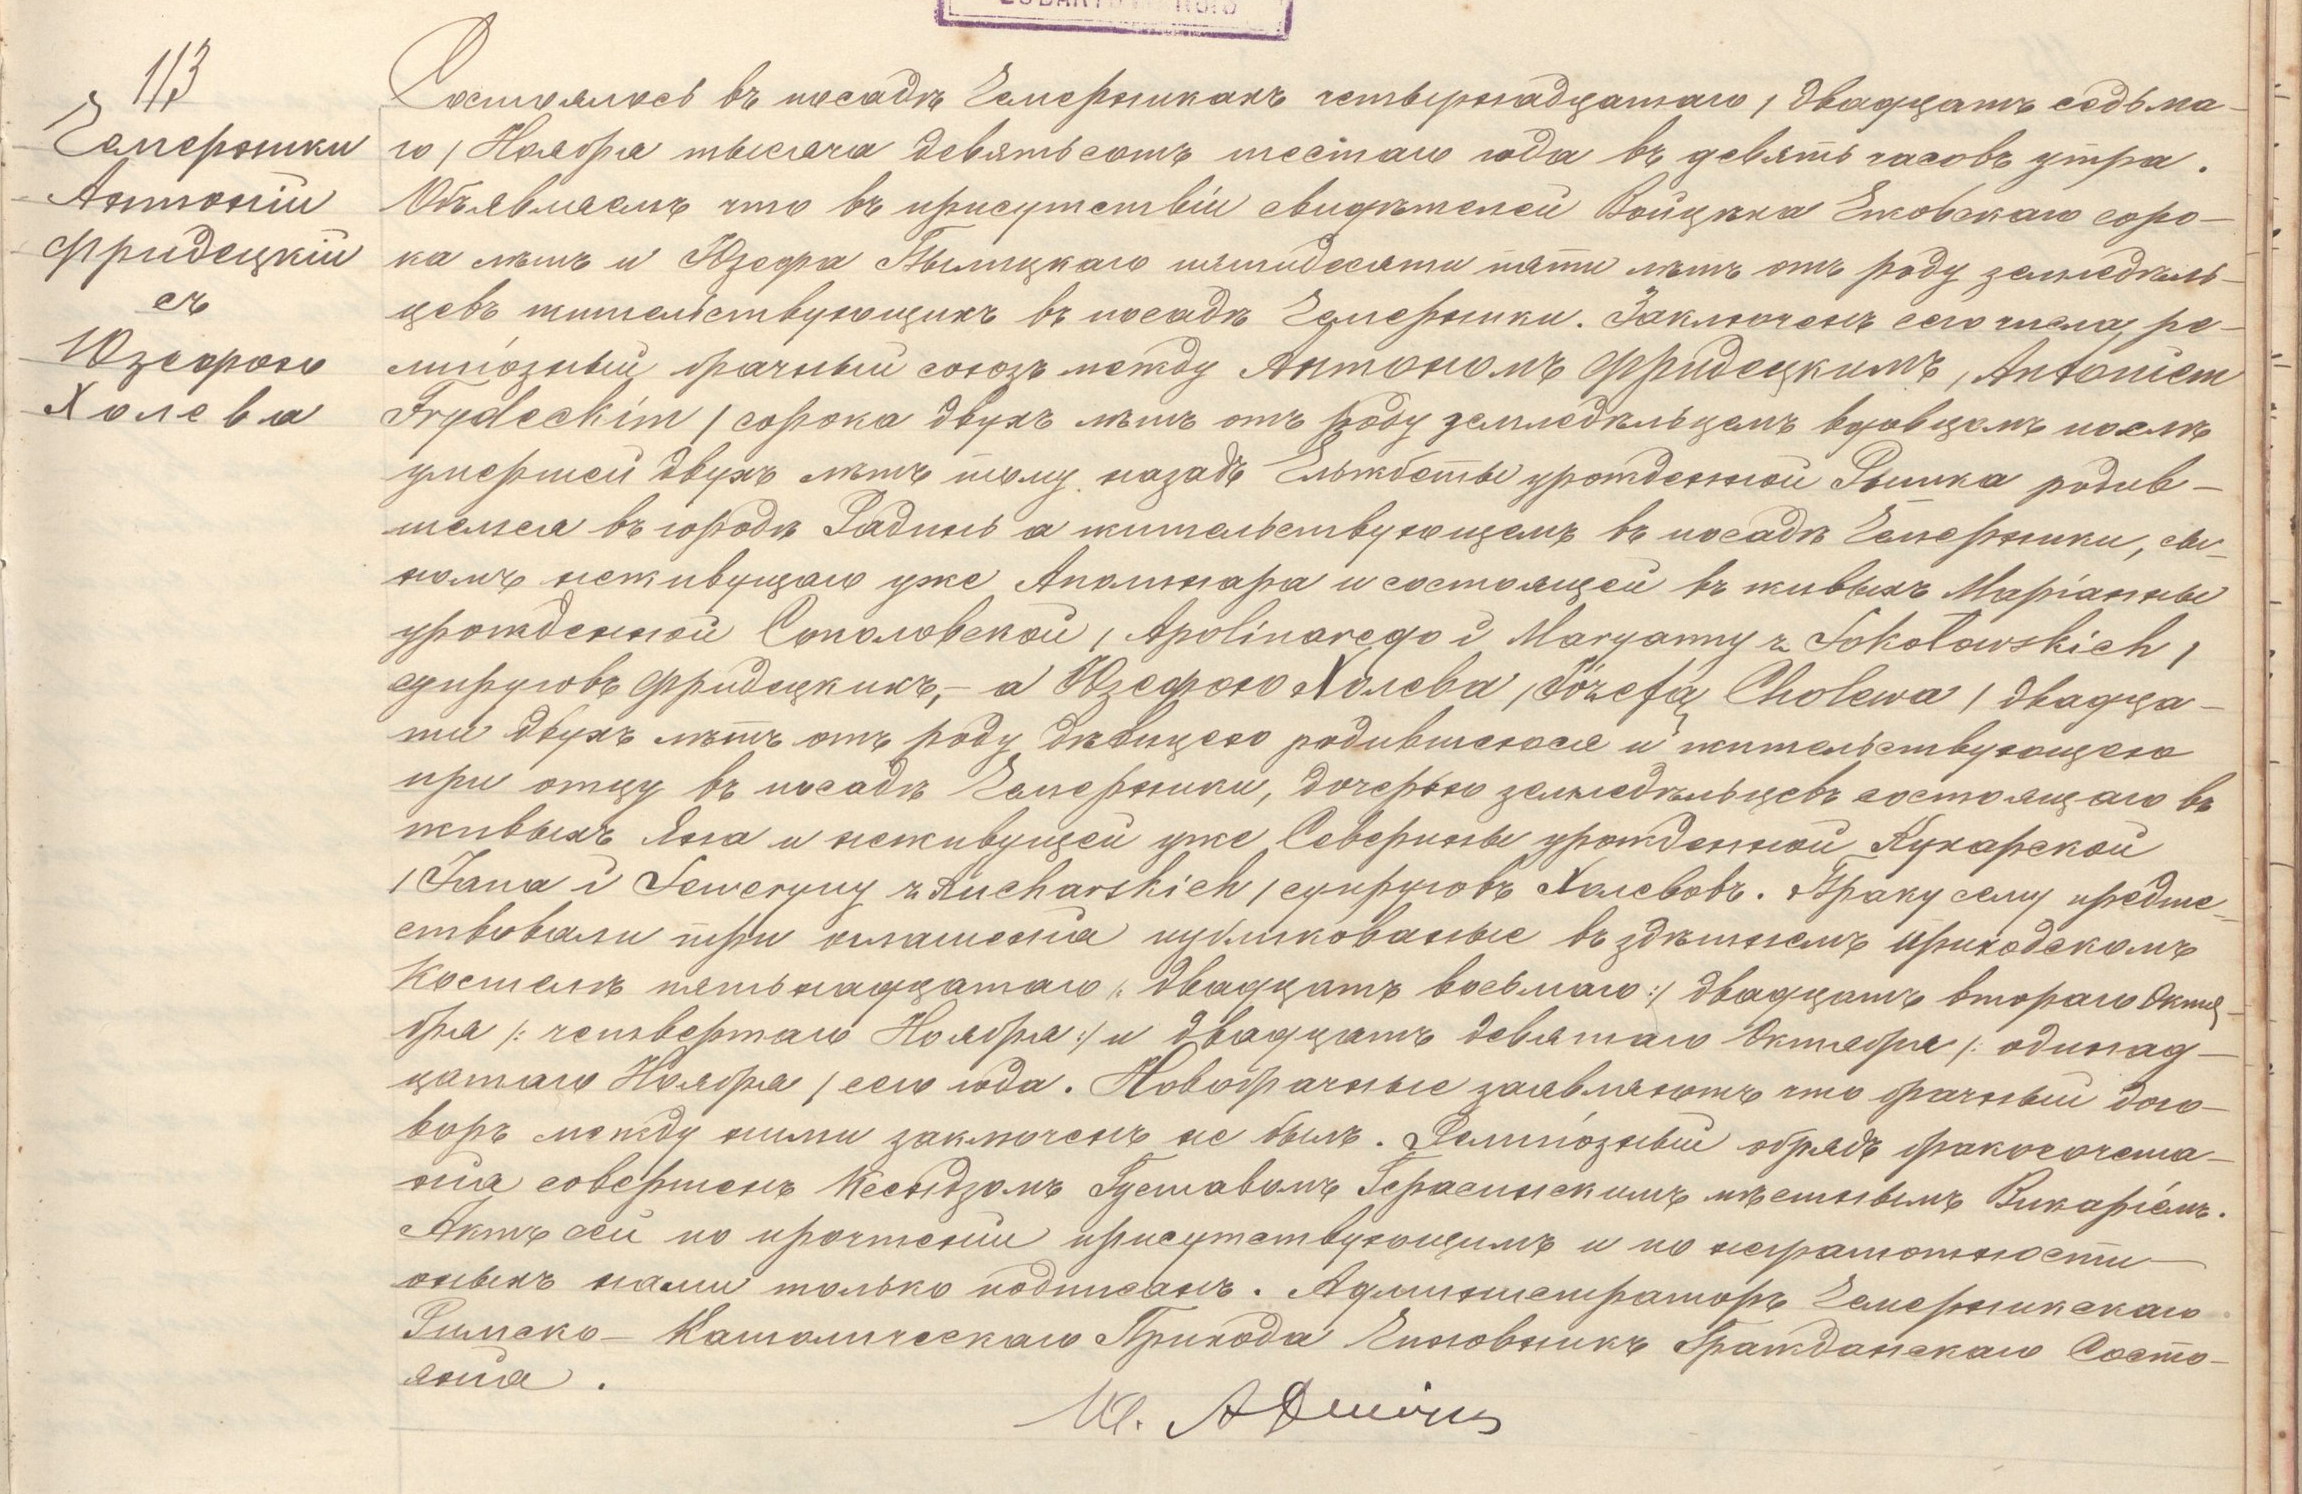 113
Чемерники
Антоній
Фридецкій
съ
Юзефою
Холева
Состоялось въ посадѣ Чемерникахъ четырнадцатаго / двадцать седьма-
го / Ноября тысяча девятьсотъ шестаго года въ девять часовъ утра.
Объявляемъ что въ присутствіи свидѣтелей Войцѣха Ежовскаго соро-
ка лѣтъ и Юзефа пятидесяти пяти лѣтъ отъ роду земледѣль-
цевъ жительствующихъ въ посадѣ Чемерники. Заключенъ сего числа ре-
лигіозный брачный союзъ между Антономъ Фридецкимъ, / Antoniem
Frydeckim / сорока двухъ лѣтъ отъ роду земледѣльцемъ вдовцемъ послѣ
умершей двухъ лѣтъ тому назадъ Ельжбеты урожденной родив-
шемся въ городѣ Радинь а жительствующемъ въ посадѣ Чемерники, сы-
номъ неживущаго уже Аполинара и состоящей въ живыхъ Маріанны
урожденной Соколовской / Apolinarego i Maryanny z Sokołowskich /
супруговъ Фридецкихъ, - а Юзефою Холева / Józefą Cholewa / двадца-
ти двухъ лѣтъ отъ роду дѣвицею родившеюся и жительствующею
при отцу въ посадѣ Чемерники, дочерью земледѣльцевъ состоящаго въ
живыхъ Яна и неживущей уже Северины урожденной Кухарской
/ Jana i Seweryny z Kucharskich / супруговъ Холевовъ. Браку сему предше-
ствовали три оглашенія публикованые въ здѣшнемъ приходскомъ
Костелѣ пятьнадцатаго /: двадцать восьмаго :/ двадцать втораго Октя-
бря /: четвертаго Ноября :/ и двадцать девятаго Октября /: одинад-
цатаго Ноября / сего года. Новобрачные заявляютъ что брачный дого-
воръ между ними заключенъ не былъ. Религіозный обрядъ бракосочета-
нія совершенъ Ксендзомъ Густавомъ Герасинскимъ мѣстнымъ Викаріемъ.
Актъ сей по прочтеніи присутствующимъ и по неграмотности
оныхъ нами только подписанъ. Администраторъ Чемерникскаго
Римско - Католическаго Прихода Чиновникъ Гражданскаго Состо-
янія.